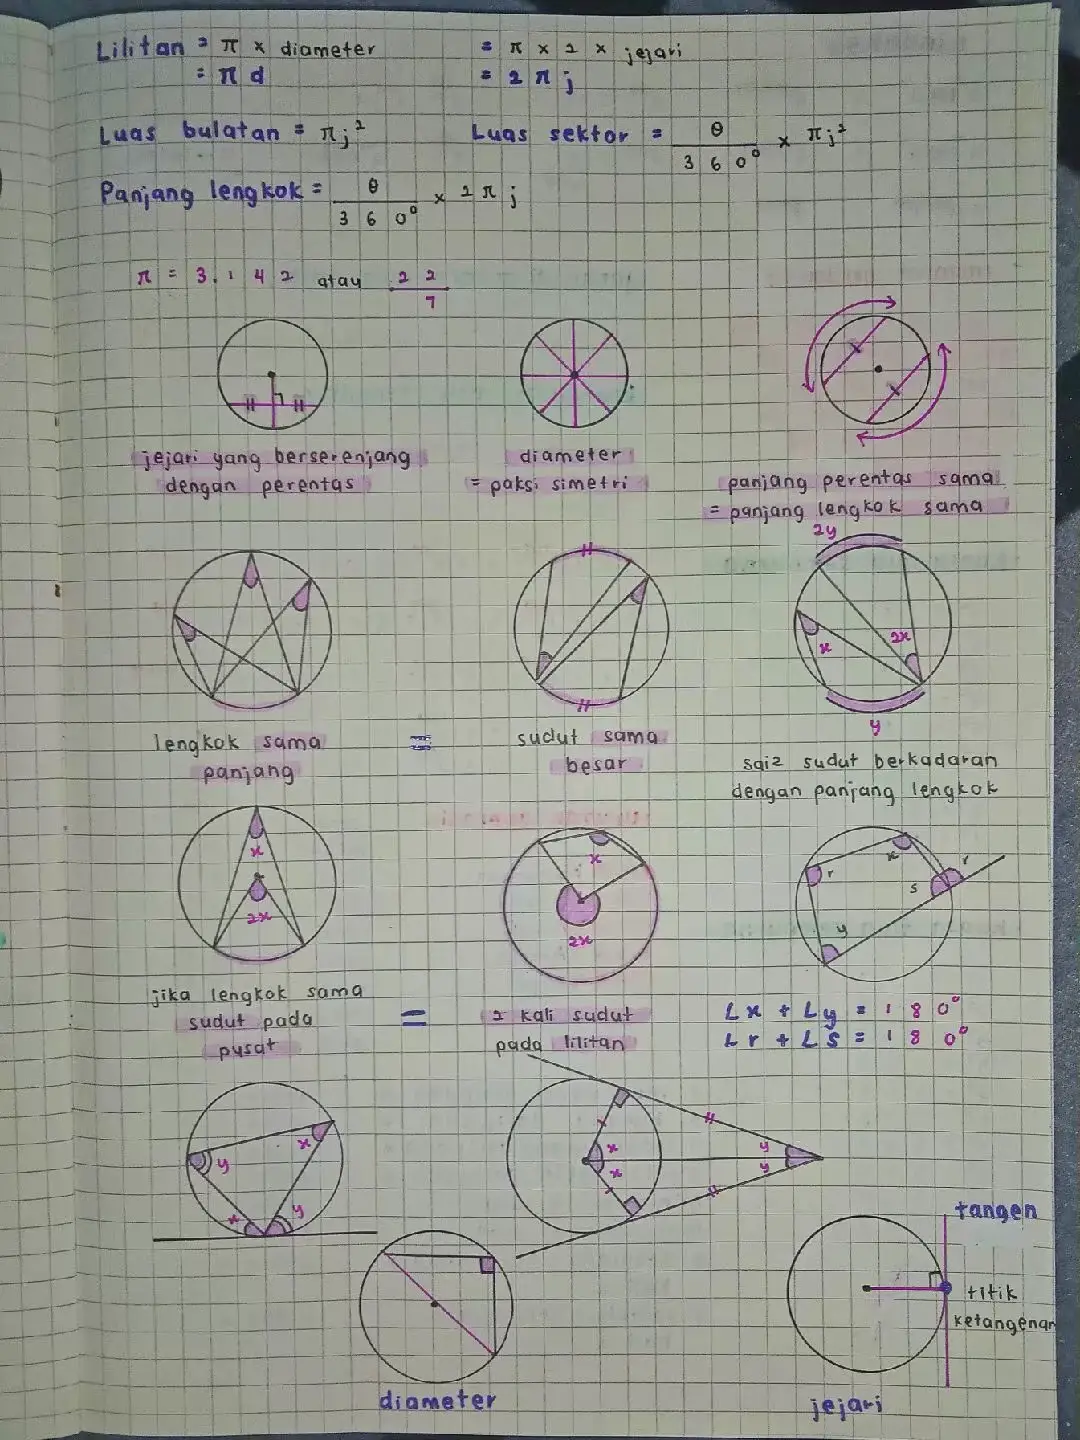 Lilitan = π × diameter = π × 2 × jejari
= π d = 2 π j
Luas bulatan = πj² Luas sektor = θ/360° × πj²
Panjang lengkok = θ/360° × 2 π j
π = 3.142 atau 22/7
jejari yang berserenjang
dengan perentas
diameter
= paksi simetri
panjang perentas sama
= panjang lengkok sama
2y
x 2x
y
lengkok sama
panjang
=
sudut sama
besar
saiz sudut berkadaran
dengan panjang lengkok
x
2x
x
2x
x r
r s
y
jika lengkok sama
sudut pada
pusat
=
2 kali sudut
pada lilitan
∠x + ∠y = 180°
∠r + ∠s = 180°
x
y
x y
x y
x y
tangen
titik
ketangenan
diameter
jejari